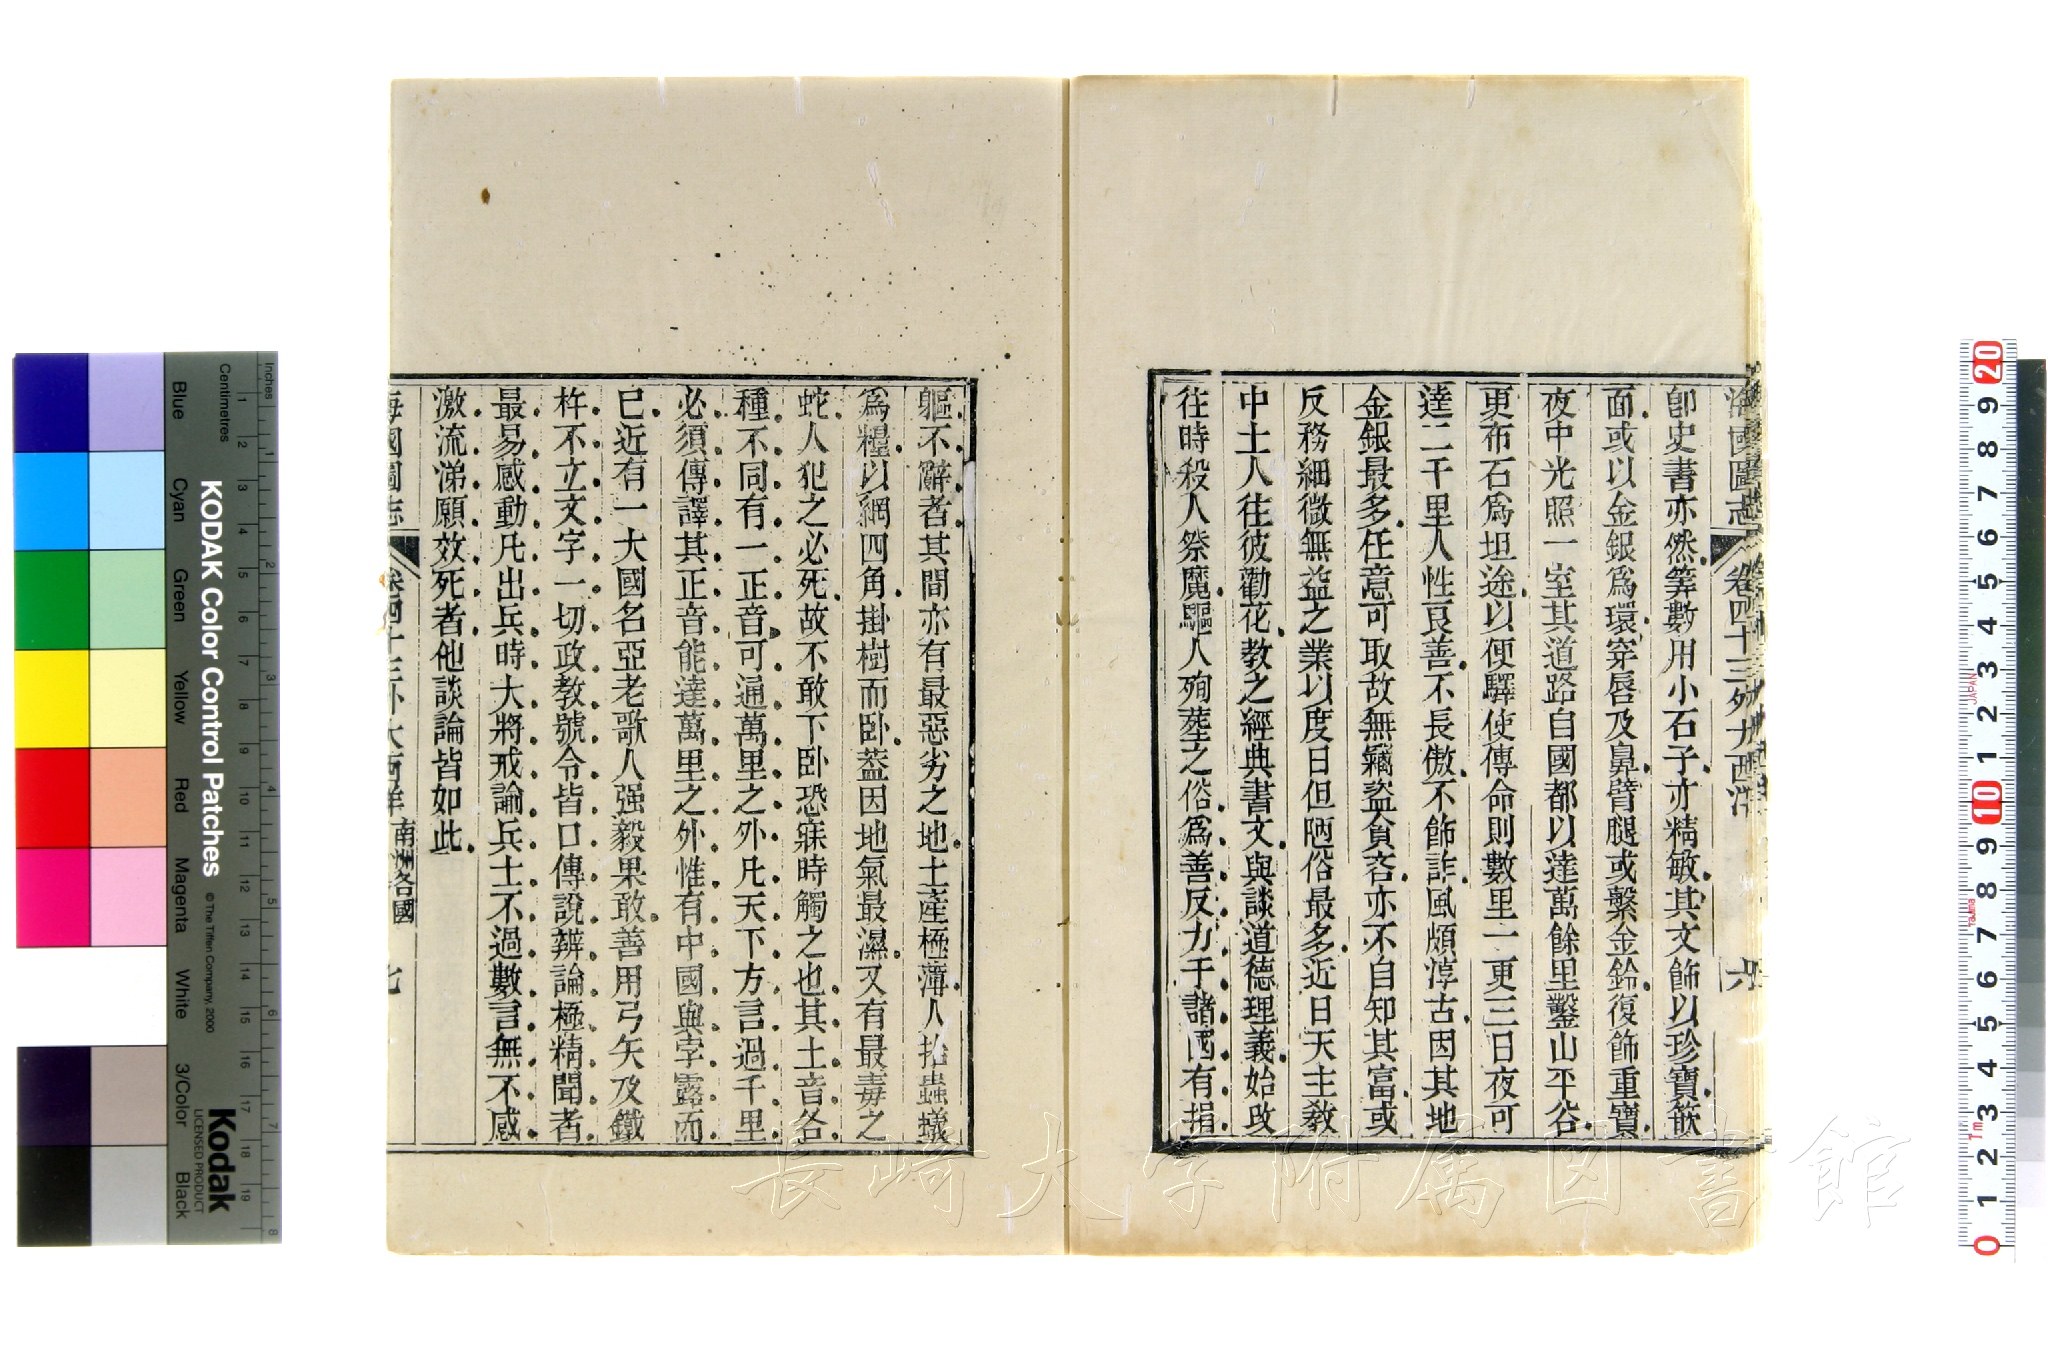 海國圖志 卷四十三外大西洋 六
卽史書亦然筭數用小石子亦精敏其文飾以珍寶篏
面或以金銀爲環穿唇及鼻臂腿或繫金鈴復飾重寶
夜中光照一室其道路自國都以達萬餘里鑿山平谷
更布石爲坦途以便驛使傳命則數里一更三日夜可
達二千里人性良善不長傲不飾詐風頗淳古因其地
金銀最多任意可取故無竊盜貪吝亦不自知其富或
反務細微無益之業以度日但陋俗最多近日天主敎
中土人往彼勸化教之經典書文與談道德理義始改
往時殺人祭魔驅人殉葬之俗爲善反力于諸國有捐
軀不辭者其間亦有最惡劣之地土產極薄人拾蟲蟻
爲糧以網四角掛樹而卧葢因地氣最濕又有最毒之
蛇人犯之必死故不敢下卧恐寐時觸之也其土音各
種不同有一正音可通萬里之外凡天下方言過千里
必須傳譯其正音能達萬里之外惟有中國與孛露而
已近有一大國名亞老歌人强毅果敢善用弓矢及鐵
杵不立文字一切政教號令皆口傳說辨論極精聞者
最易感動凡出兵時大將戒諭兵士不過數言無不感
激流涕願效死者他談論皆如此
海國圖志 卷四十三外大西洋 南洲各國 七
KODAK Color Control Patches
© The Tiffen Company, 2000
Kodak
LICENSED PRODUCT
Inches
Centimetres
Blue
Cyan
Green
Yellow
Red
Magenta
White
3/Color
Black
1 2 3 4 5 6 7 8 9 10 11 12 13 14 15 16 17 18 19
1 2 3 4 5 6 7 8
20 9 8 7 6 5 4 3 2 1 10 9 8 7 6 5 4 3 2 1 0
JAPAN
長崎大学附属図書館